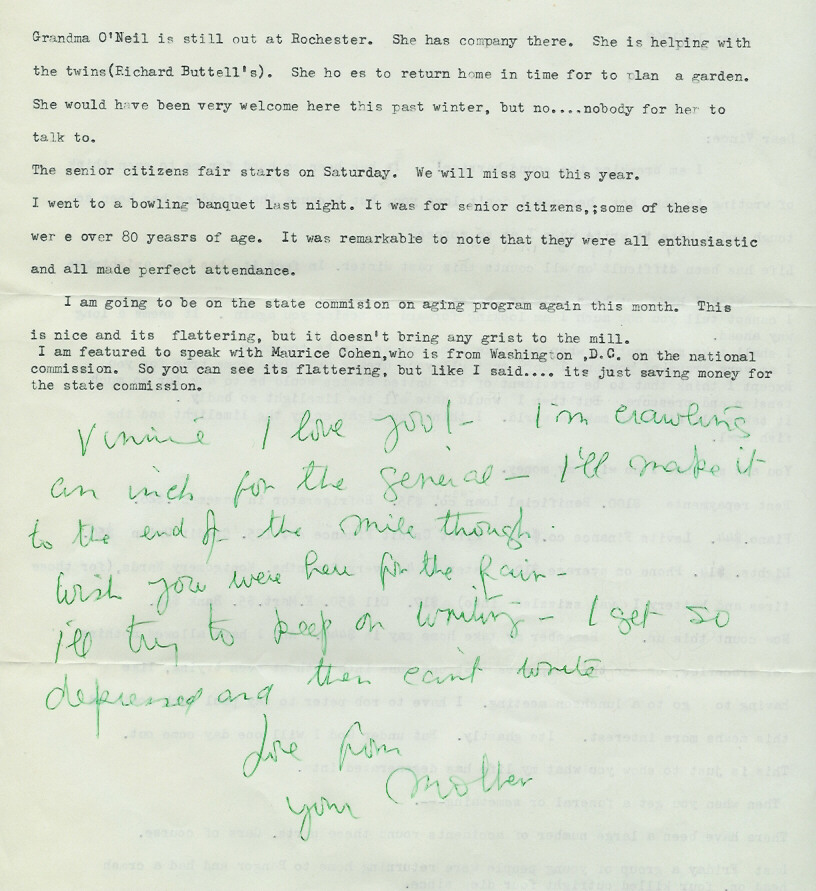 Grandma O'Neil is still out at Rochester. She has company there. She is helping with
the twins(Richard Buttell's). She ho es to return home in time for to plan a garden.
She would have been very welcome here this past winter, but no....nobody for her to
talk to.
The senior citizens fair starts on Saturday. We will miss you this year.
I went to a bowling banquet last night. It was for senior citizens,;some of these
wer e over 80 yeasrs of age. It was remarkable to note that they were all enthusiastic
and all made perfect attendance.
I am going to be on the state commision on aging program again this month. This
is nice and its flattering, but it doesn't bring any grist to the mill.
I am featured to speak with Maurice Cohen,who is from Washington ,D.C. on the national
commission. So you can see its flattering, but like I said.... its just saving money for
the state commission.
Vinnie I love you!- I'm crawling
an inch for the general - I'll make it
to the end of the mile though.
Wish you were here for the fair -
I'll try to keep on writing - I get so
depressed and then can't write
Love from
your Mother